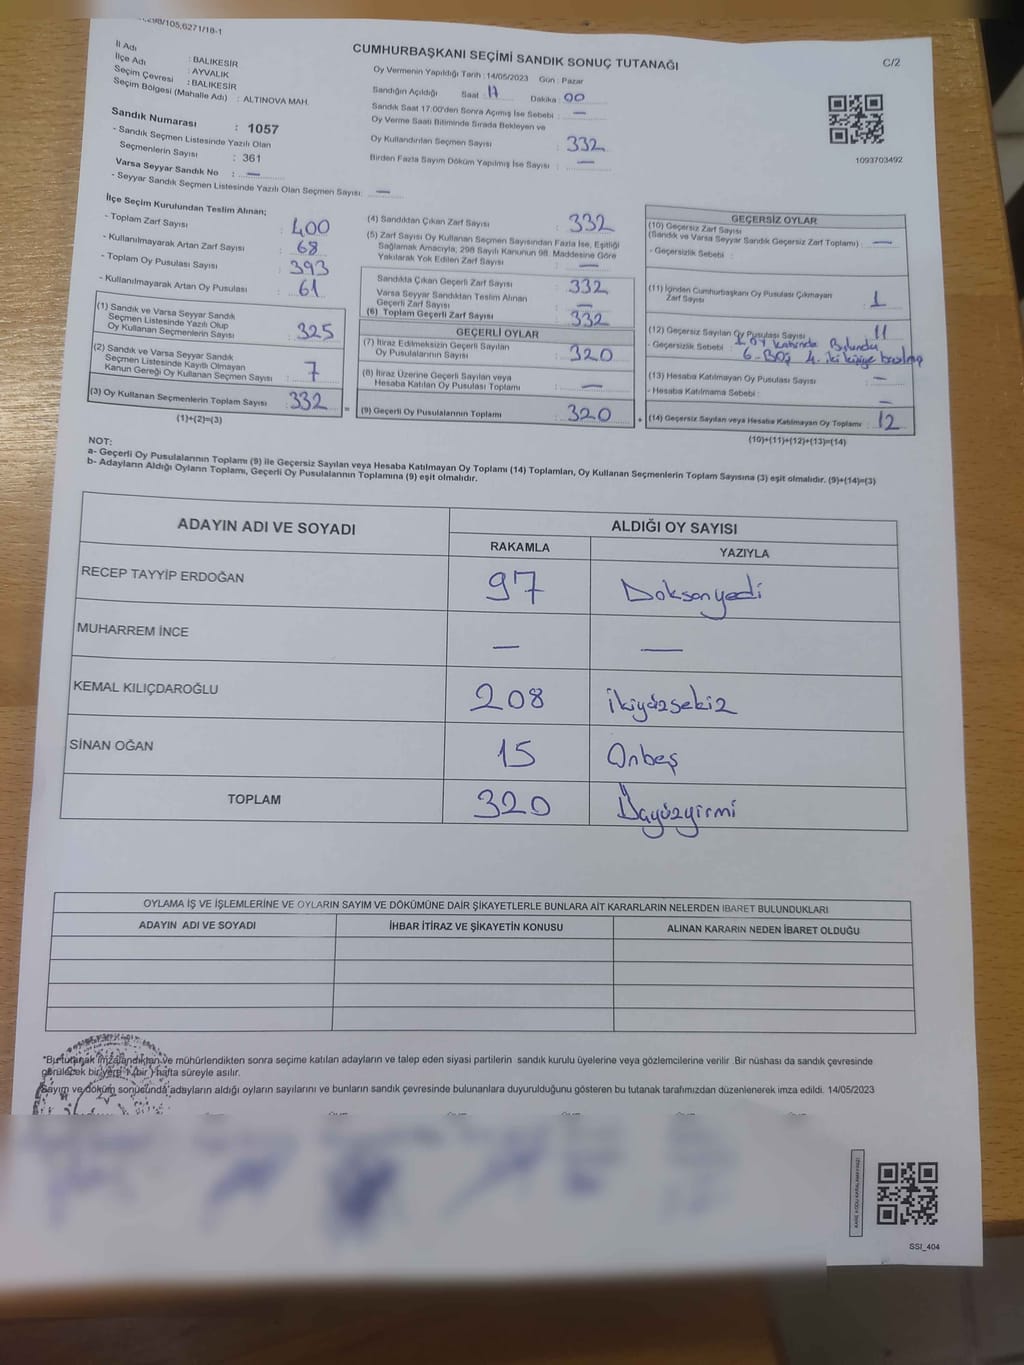 298/105,6271/18-1
CUMHURBAŞKANI SEÇİMİ SANDIK SONUÇ TUTANAĞI
C/2
İl Adı : BALIKESİR
İlçe Adı : AYVALIK
Seçim Çevresi : BALIKESİR
Seçim Bölgesi (Mahalle Adı) : ALTINOVA MAH.
Oy Vermenin Yapıldığı Tarih : 14/05/2023 Gün : Pazar
Sandığın Açıldığı Saat : 17 Dakika : 00
Sandık Saat 17:00'den Sonra Açılmış İse Sebebi : —
Oy Verme Saati Bitiminde Sırada Bekleyen ve
Oy Kullandırılan Seçmen Sayısı : 332
Birden Fazla Sayım Döküm Yapılmış İse Sayısı : —
1093703492
Sandık Numarası : 1057
- Sandık Seçmen Listesinde Yazılı Olan
Seçmenlerin Sayısı : 361
Varsa Seyyar Sandık No : —
- Seyyar Sandık Seçmen Listesinde Yazılı Olan Seçmen Sayısı: —
İlçe Seçim Kurulundan Teslim Alınan;
- Toplam Zarf Sayısı : 400
- Kullanılmayarak Artan Zarf Sayısı : 68
- Toplam Oy Pusulası Sayısı : 393
- Kullanılmayarak Artan Oy Pusulası : 61
(1) Sandık ve Varsa Seyyar Sandık
Seçmen Listesinde Yazılı Olup
Oy Kullanan Seçmenlerin Sayısı : 325
(2) Sandık ve Varsa Seyyar Sandık
Seçmen Listesinde Kayıtlı Olmayan
Kanun Gereği Oy Kullanan Seçmen Sayısı : 7
(3) Oy Kullanan Seçmenlerin Toplam Sayısı : 332
(1)+(2)=(3)
(4) Sandıktan Çıkan Zarf Sayısı : 332
(5) Zarf Sayısı Oy Kullanan Seçmen Sayısından Fazla İse, Eşitliği
Sağlamak Amacıyla; 298 Sayılı Kanunun 98. Maddesine Göre
Yakılarak Yok Edilen Zarf Sayısı : —
Sandıkta Çıkan Geçerli Zarf Sayısı : 332
Varsa Seyyar Sandıktan Teslim Alınan
Geçerli Zarf Sayısı : —
(6) Toplam Geçerli Zarf Sayısı : 332
GEÇERLİ OYLAR
(7) İtiraz Edilmeksizin Geçerli Sayılan
Oy Pusulalarının Sayısı : 320
(8) İtiraz Üzerine Geçerli Sayılan veya
Hesaba Katılan Oy Pusulası Toplamı : —
= (9) Geçerli Oy Pusulalarının Toplamı : 320
GEÇERSİZ OYLAR
(10) Geçersiz Zarf Sayısı
(Sandık ve Varsa Seyyar Sandık Geçersiz Zarf Toplamı) : —
- Geçersizlik Sebebi :
(11) İçinden Cumhurbaşkanı Oy Pusulası Çıkmayan
Zarf Sayısı : 1
(12) Geçersiz Sayılan Oy Pusulası Sayısı : 11
- Geçersizlik Sebebi : 1 oy Bulundu
6. BOŞ 4. iki kişiye
(13) Hesaba Katılmayan Oy Pusulası Sayısı : —
- Hesaba Katılmama Sebebi : —
+ (14) Geçersiz Sayılan veya Hesaba Katılmayan Oy Toplamı : 12
(10)+(11)+(12)+(13)=(14)
NOT:
a- Geçerli Oy Pusulalarının Toplamı (9) ile Geçersiz Sayılan veya Hesaba Katılmayan Oy Toplamı (14) Toplamları, Oy Kullanan Seçmenlerin Toplam Sayısına (3) eşit olmalıdır. (9)+(14)=(3)
b- Adayların Aldığı Oyların Toplamı, Geçerli Oy Pusulalarının Toplamına (9) eşit olmalıdır.
ADAYIN ADI VE SOYADI ALDIĞI OY SAYISI
RAKAMLA YAZIYLA
RECEP TAYYİP ERDOĞAN 97 Doksanyedi
MUHARREM İNCE — —
KEMAL KILIÇDAROĞLU 208 ikiyüzsekiz
SİNAN OĞAN 15 Onbeş
TOPLAM 320 Üçyüzyirmi
OYLAMA İŞ VE İŞLEMLERİNE VE OYLARIN SAYIM VE DÖKÜMÜNE DAİR ŞİKAYETLERLE BUNLARA AİT KARARLARIN NELERDEN İBARET BULUNDUKLARI
ADAYIN ADI VE SOYADI İHBAR İTİRAZ VE ŞİKAYETİN KONUSU ALINAN KARARIN NEDEN İBARET OLDUĞU
"Bu tutanak imzalandıktan ve mühürlendikten sonra seçime katılan adayların ve talep eden siyasi partilerin sandık kurulu üyelerine veya gözlemcilerine verilir. Bir nüshası da sandık çevresinde
görülecek bir yere 1 (bir) hafta süreyle asılır.
Sayım ve döküm sonucunda adayların aldığı oyların sayılarını ve bunların sandık çevresinde bulunanlara duyurulduğunu gösteren bu tutanak tarafımızdan düzenlenerek imza edildi. 14/05/2023
SSI_404